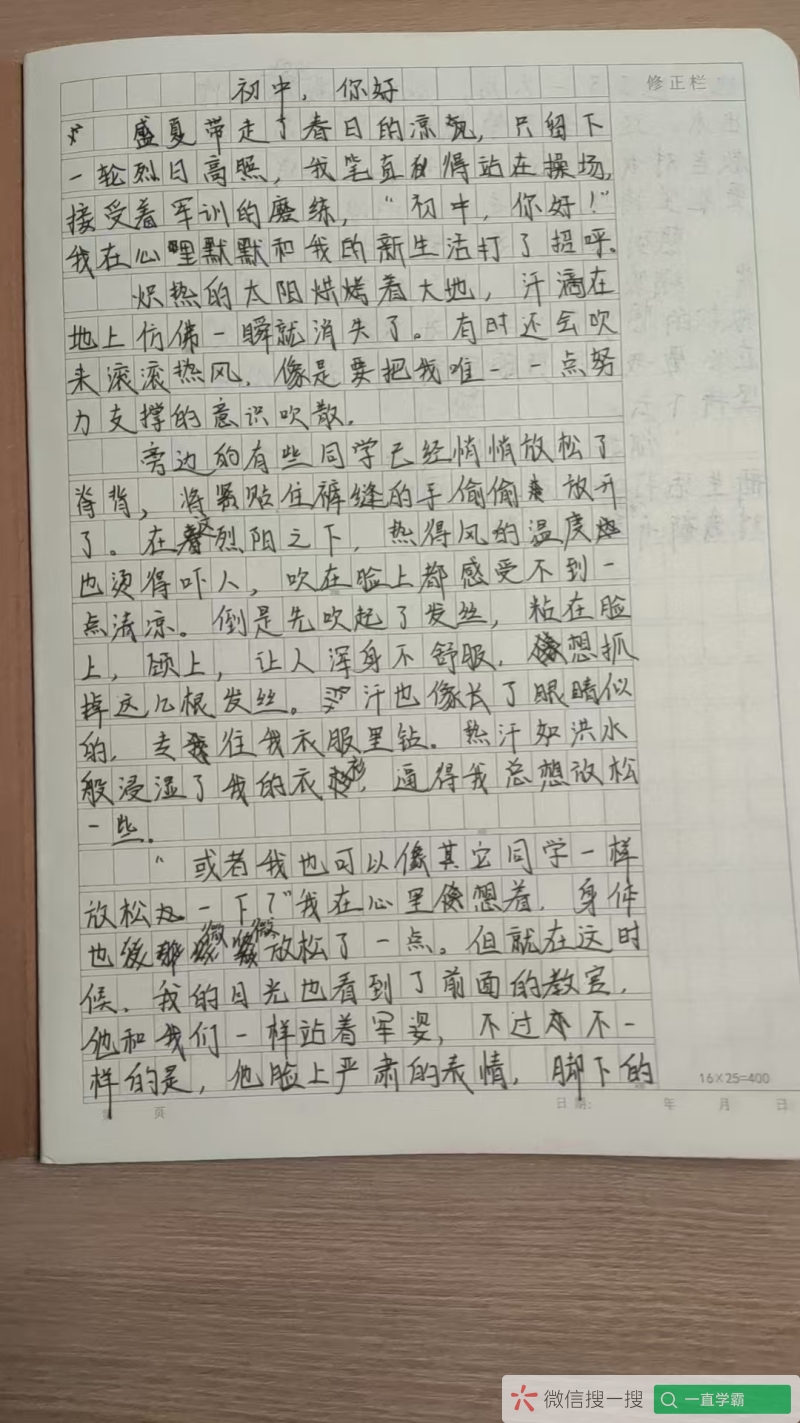 初中，你好
修正栏
盛夏带走了春日的凉气，只留下
一轮烈日高照，我笔直得站在操场，
接受着军训的磨练，“初中，你好！”
我在心里默默和我的新生活打了招呼。
炽热的太阳烘烤着大地，汗滴在
地上仿佛一瞬就消失了。有时还会吹
来滚滚热风，像是要把我唯一一点努
力支撑的意识吹散。
旁边的有些同学已经悄悄放松了
脊背，将紧贴住裤缝的手偷偷放开
了。在这烈阳之下，热得风的温度
也烫得吓人，吹在脸上都感受不到一
点清凉。倒是先吹起了发丝，粘在脸
上，颀上，让人浑身不舒服，想抓
掉这几根发丝。汗也像长了眼睛似
的，专往我衣服里钻。热汗如洪水
般浸湿了我的衣衫，逼得我总想放松
一些。
“或者我也可以像其它同学一样
放松一下？”我在心里想着，身体
也微微放松了一点。但就在这时
候，我的目光也看到了前面的教官，
他和我们一样站着军姿，不过不一
样的是，他脸上严肃的表情，脚下的
16×25=400
页
日期： 年 月 日
微信搜一搜
一直学霸